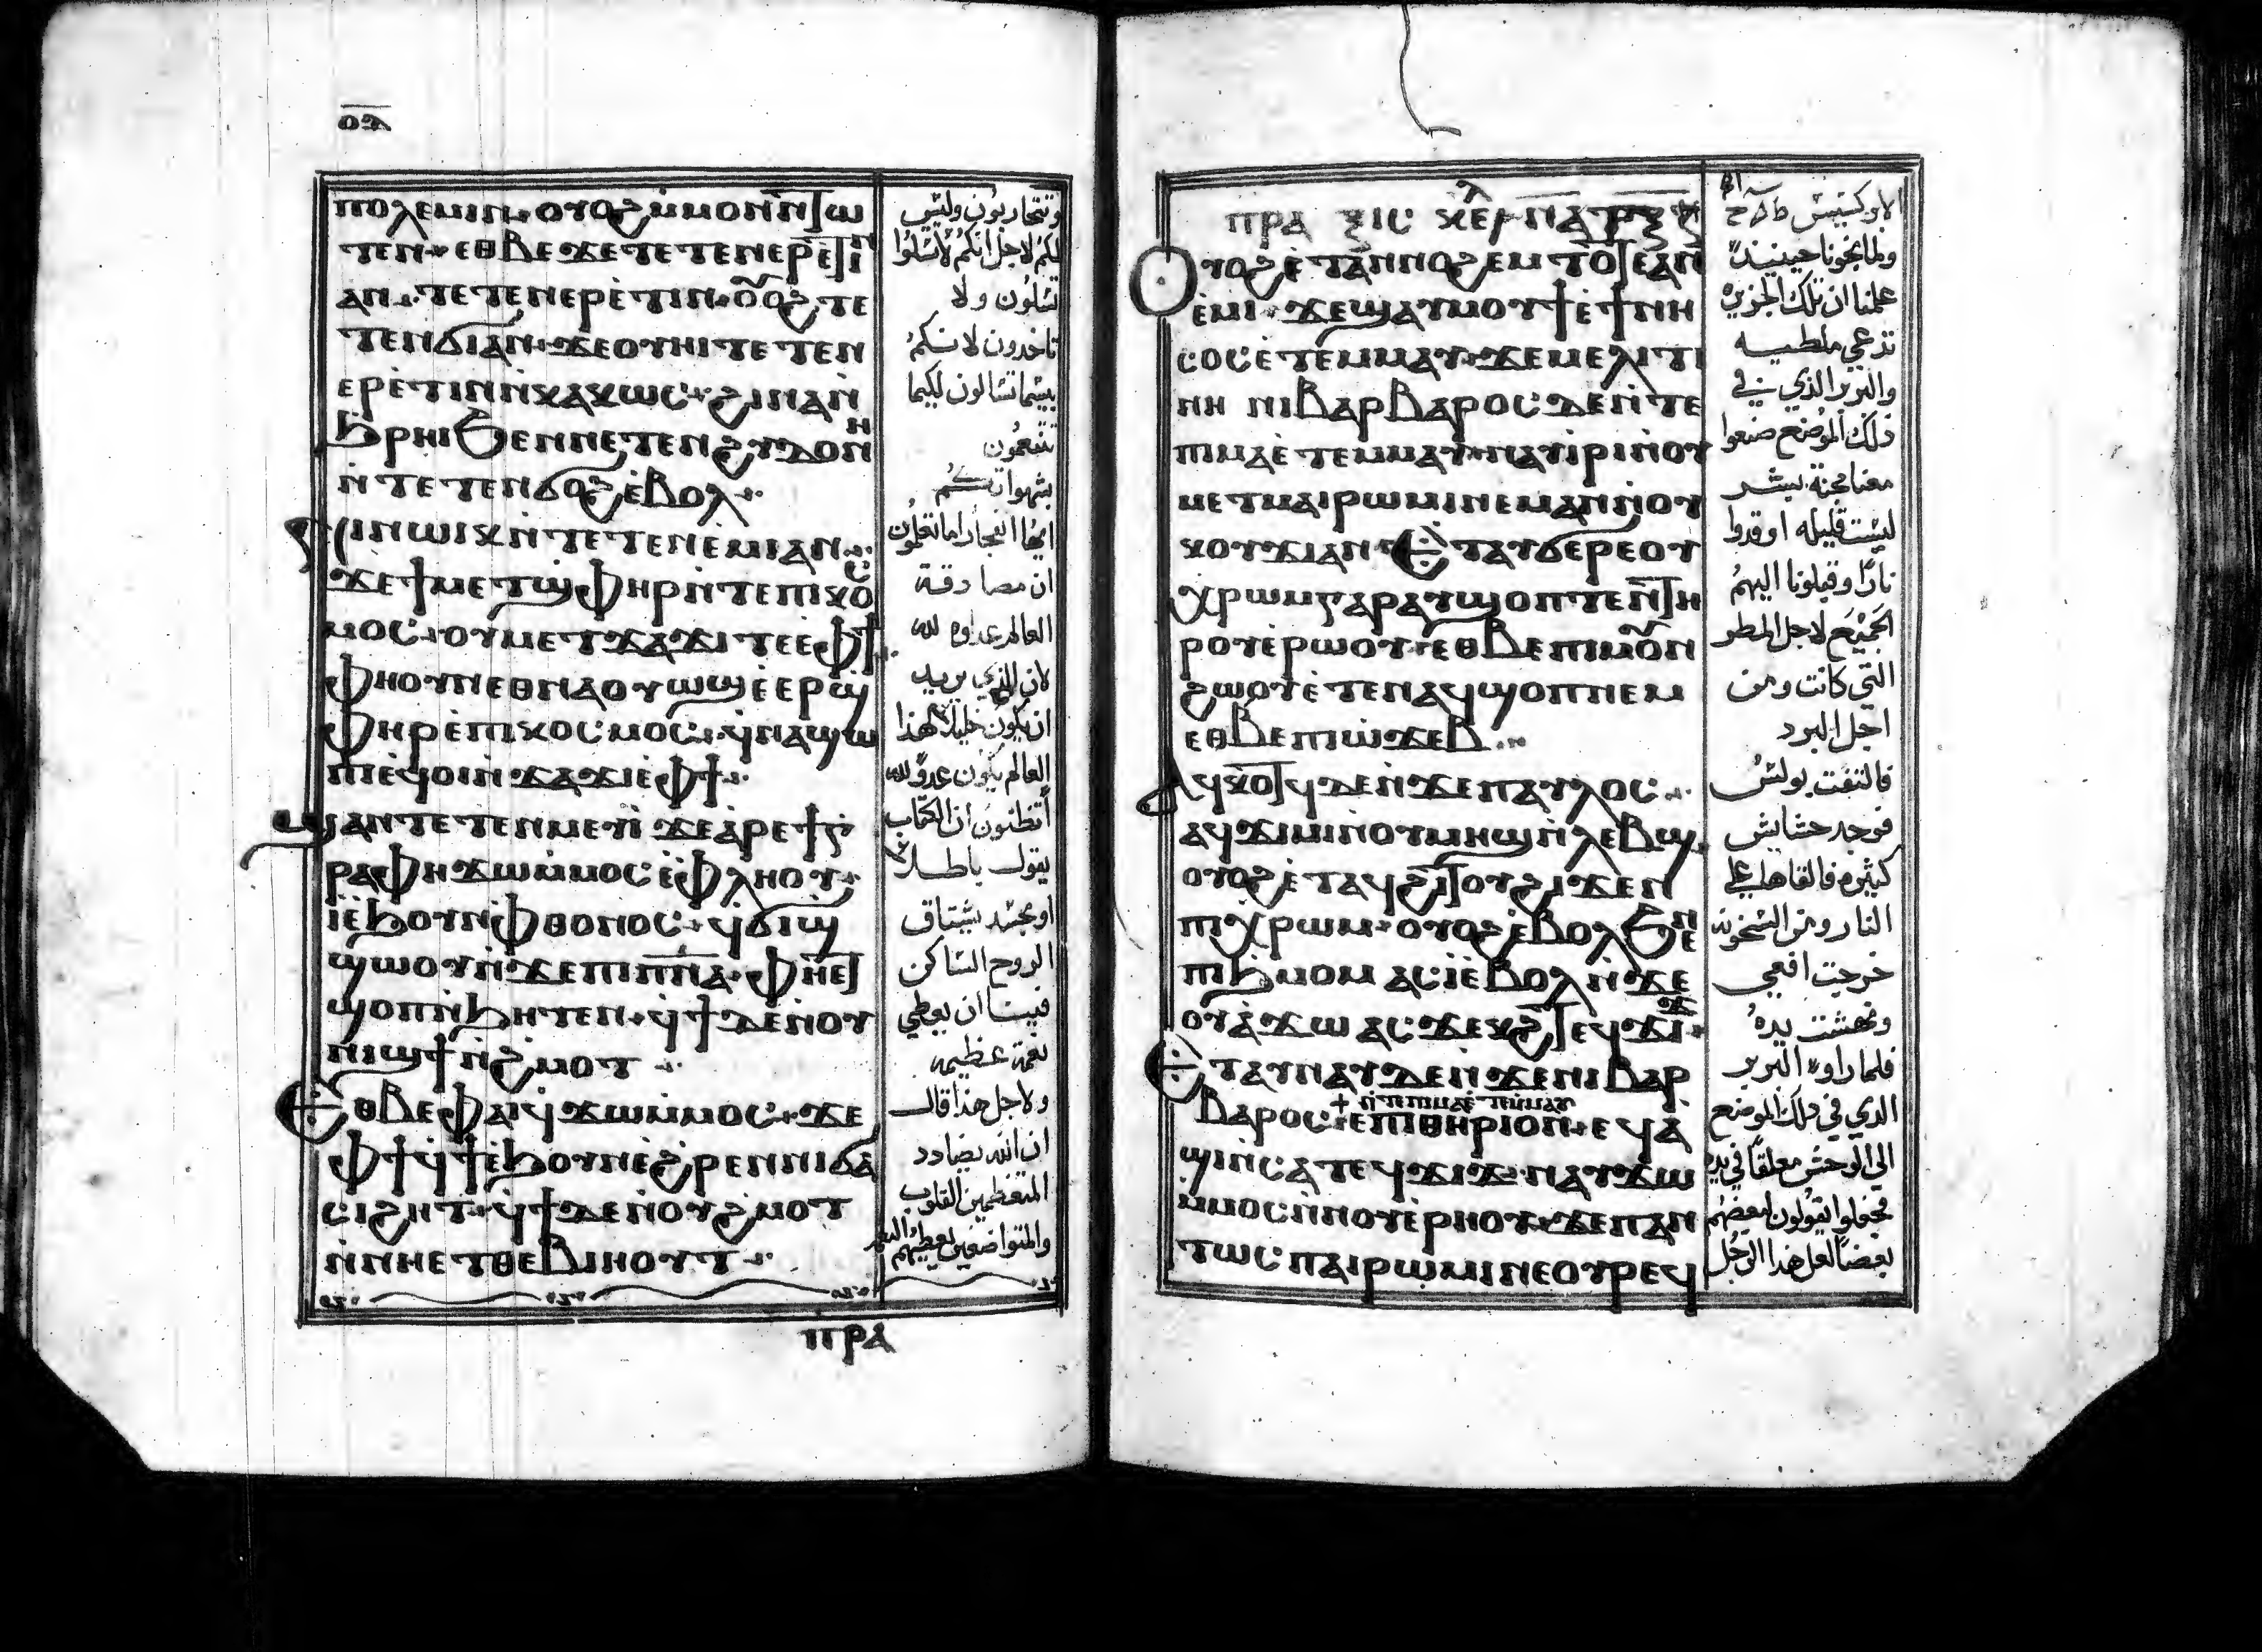 ⲟⲇ
ⲡⲟⲗⲉⲙⲓⲛ ⲟⲩⲟϩ ⲙ̀ⲙⲟⲛ
ⲧⲉⲛ ⲉⲑⲃⲉ ϫⲉ ⲧⲉⲧⲉⲛⲉⲣⲉ̀ⲧⲓⲛ
ⲁⲛ ⲧⲉⲧⲉⲛⲉⲣⲉ̀ⲧⲓⲛ ⲟⲩⲟϩ ⲧⲉ
ⲧⲉⲛϭⲓ ⲁⲛ ϫⲉ ⲟⲩⲏⲓ ⲧⲉⲧⲉⲛ
ⲉⲣⲉ̀ⲧⲓⲛ ⲛ̀ⲕⲁⲕⲱⲥ ϩⲓⲛⲁ ⲛ̀
ϧⲣⲏⲓ ϧⲉⲛ ⲛⲉⲧⲉⲛϩⲩⲇⲟⲛⲏ
ⲛ̀ⲧⲉⲧⲉⲛϭⲟϩ ⲉ̀ⲃⲟⲗ
ⲛⲓⲛⲱⲓⲕ ⲛ̀ⲧⲉⲧⲉⲛⲉ̀ⲙⲓ ⲁⲛ
ϫⲉ ϯⲙⲉⲧϣⲫⲏⲣ ⲛ̀ⲧⲉ ⲡⲓⲕⲟⲥ
ⲙⲟⲥ ⲟⲩⲙⲉⲧϫⲁϫⲓ ⲧⲉ ⲉ̀ⲫϯ
ⲫⲏ ⲟⲩⲛ ⲉⲑⲛⲁⲟⲩⲱϣ ⲉ̀ⲉⲣϣ
ⲫⲏⲣ ⲉ̀ⲡⲓⲕⲟⲥⲙⲟⲥ ϥ̀ⲛⲁϣⲱ
ⲡⲓ ⲉϥⲟⲓ ⲛ̀ϫⲁϫⲓ ⲉ̀ⲫϯ
ϣⲁⲛ ⲧⲉⲧⲉⲛⲙⲉⲩⲓ̀ ϫⲉ ⲁ̀ⲣⲉ ϯⲅ̀
ⲣⲁⲫⲏ ϫⲱ ⲙ̀ⲙⲟⲥ ⲉ̀ⲫⲗⲏⲟⲩ
ⲓⲉ ⲉ̀ϧⲟⲩⲛ ⲫⲑⲟⲛⲟⲥ ϥ̀ϭⲓϣ
ϣⲱⲟⲩ ⲛ̀ϫⲉ ⲡⲓⲡⲛⲁ̅ ⲫⲏⲉⲧ
ϣⲟⲡ ⲛ̀ϧⲏⲧⲉⲛ ϥ̀ϯ ⲇⲉ ⲛ̀ⲟⲩ
ⲛⲓϣϯ ⲛ̀ϩⲙⲟⲧ
ⲉⲑⲃⲉ ⲫⲁⲓ ϥ̀ϫⲱ ⲙ̀ⲙⲟⲥ ϫⲉ
ⲫϯ ϥ̀ϯ ⲉ̀ϧⲟⲩⲛ ⲉ̀ϩⲣⲉⲛ ⲛⲓϭⲁ
ⲥⲓϩⲏⲧ ϥ̀ϯ ⲇⲉ ⲛ̀ⲟⲩϩⲙⲟⲧ
ⲛ̀ⲛⲏⲉⲧⲑⲉⲃⲓⲏⲟⲩⲧ
ⲡⲣⲁ
وتتحاربون وليس
لكم لاجل انكم لا تسلوا
تسلون ولا
تاخدون لانكم
بيسما تسالون لكيما
تتنعمون
بشهواتكم
ايها الفجار اما تعلمون
ان مصادقة
العالم عداوه لله
لان الذي يريد
ان يكون خليلا لهذا
العالم يكون عدوا لله
أتظنون ان الكتاب
يقول باطلا
او بحسد يشتاق
الروح الساكن
فينا ان يعطي
نعمة عظيمه
ولاجل هذا قال
ان الله يضادد
المتعظمين القلوب
والمتواضعين يعطيهم النعمه
ⲡⲣⲁⲝⲓⲥ
ⲟⲩⲟϩ ⲉ̀ⲧⲁⲛⲛⲟϩⲉⲙ ⲧⲟⲧⲉ ⲁⲛ
ⲉ̀ⲙⲓ ϫⲉ ϣⲁⲩⲙⲟⲩϯ ⲉ̀ϯⲛⲏ
ⲥⲟⲥ ⲉ̀ⲧⲉⲙⲙⲁⲩ ϫⲉ ⲙⲉⲗⲓⲧⲓ
ⲛⲏ ⲛⲓⲃⲁⲣⲃⲁⲣⲟⲥ ⲇⲉ ⲛ̀ⲧⲉ
ⲡⲓⲙⲁ ⲉ̀ⲧⲉⲙⲙⲁⲩ ⲛⲁⲩⲓ̀ⲣⲓ ⲛ̀ⲟⲩ
ⲙⲉⲧⲙⲁⲓⲣⲱⲙⲓ ⲛⲉⲙⲁⲛ ⲛ̀ⲟⲩ
ⲕⲟⲩϫⲓ ⲁⲛ ⲉⲧⲁⲩϭⲉⲣⲉ ⲟⲩ
ⲭⲣⲱⲙ ⲅⲁⲣ ⲁⲩϣⲟⲡⲧⲉⲛ ⲧⲏ
ⲣⲟⲩ ⲉ̀ⲣⲱⲟⲩ ⲉⲑⲃⲉ ⲡⲓⲙⲟⲩⲛ
ϩⲱⲟⲩ ⲉ̀ⲧⲉⲛⲁϥϣⲟⲡ ⲛⲉⲙ
ⲉⲑⲃⲉ ⲡⲓⲱ̀ϫⲉⲃ
ⲁϥⲕⲟⲧϥ ⲇⲉ ⲛ̀ϫⲉ ⲡⲁⲩⲗⲟⲥ
ⲁϥϫⲓⲙⲓ ⲛ̀ⲟⲩⲙⲏϣ ⲛ̀ⲗⲉⲃϣ
ⲟⲩⲟϩ ⲉ̀ⲧⲁϥϩⲓⲧⲟⲩ ϩⲓϫⲉⲛ
ⲡⲓⲭⲣⲱⲙ ⲟⲩⲟϩ ⲉ̀ⲃⲟⲗ ϧⲉⲛ
ⲡⲓϧⲙⲟⲙ ⲁⲥⲓ̀ ⲉ̀ⲃⲟⲗ ⲛ̀ϫⲉ
ⲟⲩⲁ̀ϫⲱ ⲁⲥϫⲉⲕϩ ⲧⲉϥϫⲓϫ
ⲉⲧⲁⲩⲛⲁⲩ ⲇⲉ ⲛ̀ϫⲉ ⲛⲓⲃⲁⲣ
ⲛ̀ⲧⲉ ⲡⲓⲙⲁ ⲉ̀ⲧⲉⲙⲙⲁⲩ
ⲃⲁⲣⲟⲥ ⲉ̀ⲡⲓⲑⲏⲣⲓⲟⲛ ⲉϥⲁ̀
ϣⲓ ⲛ̀ⲥⲁ ⲧⲉϥϫⲓϫ ⲛⲁⲩϫⲱ
ⲙ̀ⲙⲟⲥ ⲛ̀ⲛⲟⲩⲉ̀ⲣⲏⲟⲩ ϫⲉ ⲡⲁⲛ
ⲧⲱⲥ ⲡⲁⲓⲣⲱⲙⲓ ⲛⲉ ⲟⲩⲣⲉϥ
الابركسيس
ولما نجونا حينيند
علمنا ان تلك الجزيره
تدعي ملطيه
والبربر الذي في
ذلك الموضع صنعوا
معنا محبة بشر
ليست قليله اوقدوا
نارا وقبلونا اليهم
الجميع لاجل المطر
التي كانت ومن
اجل البرد
فالتفت بولس
فوجد حشايش
كثيره فالقاها علي
النار ومن السخونه
خرجت افعي
ونهشت يده
فلما راوه البربر
الدي في دلك الموضع
الي الوحش معلقا في يده
فجعلوا يقولون لبعضهم
بعضا لعل هذا الرجل